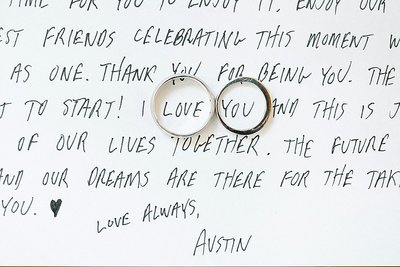 TIME FOR YOU TO ENJOY IT, ENJOY OUR
EST FRIENDS CELEBRATING THIS MOMENT W
AS ONE. THANK YOU FOR BEING YOU. THE
T TO START! I LOVE YOU AND THIS IS J
OF OUR LIVES TOGETHER. THE FUTURE
AND OUR DREAMS ARE THERE FOR THE TAK
YOU. ♥
LOVE ALWAYS,
AUSTIN